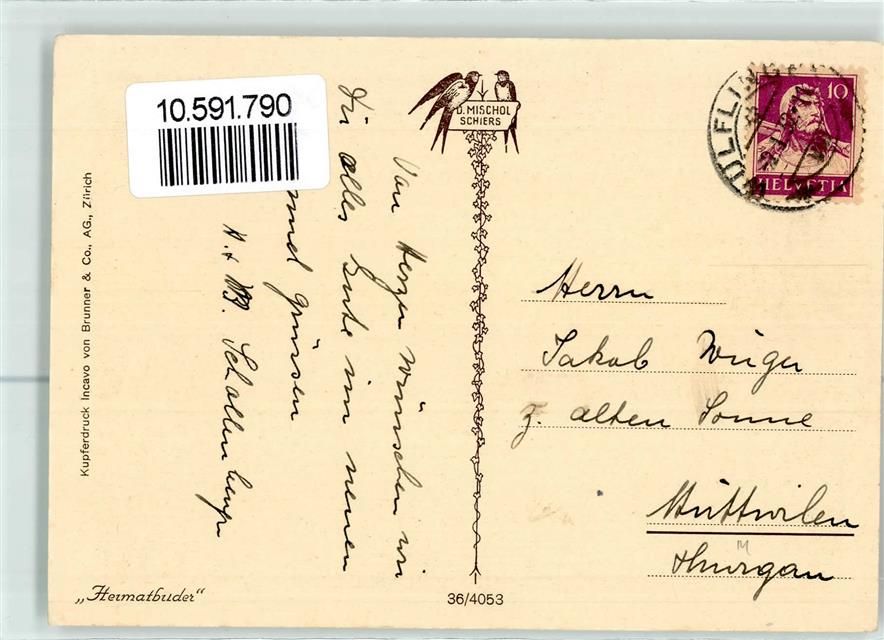 10.591.790
Kupferdruck Incavo von Brunner & Co., AG., Zürich
„Heimatbuder“
D. MISCHOL
SCHIERS
36/4053
Von Herzen wünschen wir
Dir alles Gute im neuen
grüssen
A. + Schallenberger
WÜLFLINGEN
10
HELVETIA
Herrn
Jakob Wüger
z. alten Sonne
Hüttwilen
Thurgau